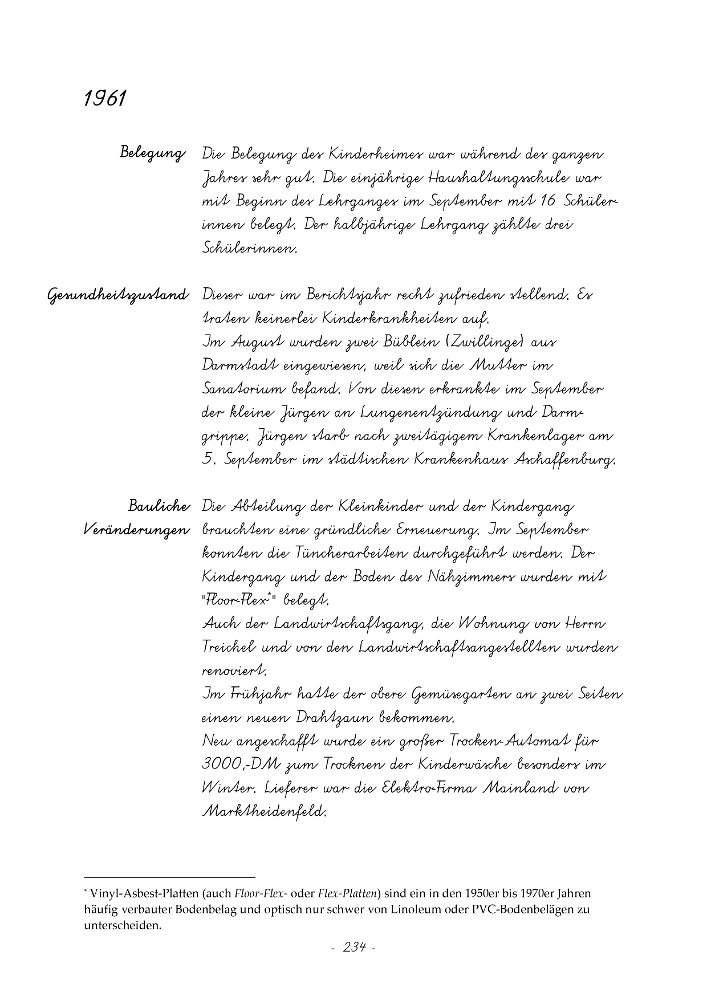 1961
Belegung Die Belegung des Kinderheimes war während des ganzen
Jahres sehr gut. Die einjährige Haushaltungsschule war
mit Beginn des Lehrganges im September mit 16 Schüler-
innen belegt. Der halbjährige Lehrgang zählte drei
Schülerinnen.
Gesundheitszustand Dieser war im Berichtsjahr recht zufrieden stellend. Es
traten keinerlei Kinderkrankheiten auf.
Im August wurden zwei Büblein (Zwillinge) aus
Darmstadt eingewiesen, weil sich die Mutter im
Sanatorium befand. Von diesen erkrankte im September
der kleine Jürgen an Lungenentzündung und Darm-
grippe. Jürgen starb nach zweitägigem Krankenlager am
5. September im städtischen Krankenhaus Aschaffenburg.
Bauliche Die Abteilung der Kleinkinder und der Kindergang
Veränderungen brauchten eine gründliche Erneuerung. Im September
konnten die Tüncherarbeiten durchgeführt werden. Der
Kindergang und der Boden des Nähzimmers wurden mit
"Floor-Flex*" belegt.
Auch der Landwirtschaftsgang, die Wohnung von Herrn
Treichel und von den Landwirtschaftsangestellten wurden
renoviert.
Im Frühjahr hatte der obere Gemüsegarten an zwei Seiten
einen neuen Drahtzaun bekommen.
Neu angeschafft wurde ein großer Trocken-Automat für
3000,-DM zum Trocknen der Kinderwäsche besonders im
Winter. Lieferer war die Elektro-Firma Mainland von
Marktheidenfeld.
* Vinyl-Asbest-Platten (auch Floor-Flex- oder Flex-Platten) sind ein in den 1950er bis 1970er Jahren
häufig verbauter Bodenbelag und optisch nur schwer von Linoleum oder PVC-Bodenbelägen zu
unterscheiden.
- 234 -